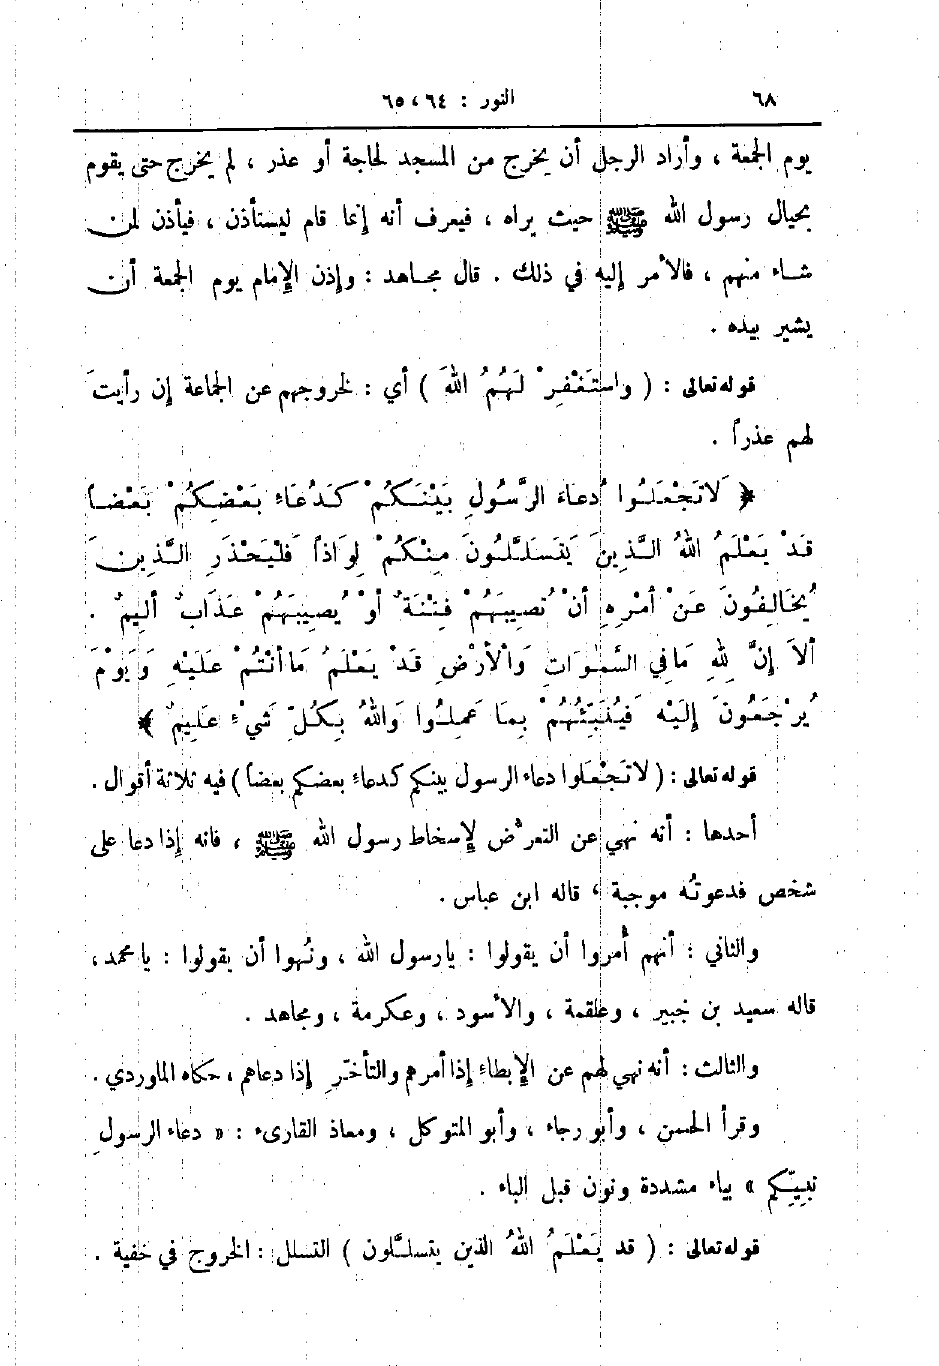 ٦٨ النور : ٦٤ ، ٦٥
يوم الجمعة ، وأراد الرجل أن يخرج من المسجد لحاجة أو عذر ، لم يخرج حتى يقوم
بحيال رسول الله ﷺ حيث يراه ، فيعرف أنه إنما قام ليستأذن ، فيأذن لمن
شاء منهم ، فالأمر إليه في ذلك . قال مجاهد : وإذن الإمام يوم الجمعة أن
يشير بيده .
قوله تعالى : ( واستَغْفِرْ لَهُمُ اللهَ ) أي : لخروجهم عن الجماعة إن رأيتَ
لهم عذراً .
﴿ لَا تَجْعَلُوا دُعاءَ الرَّسُولِ بَيْنَكُمْ كَدُعَاءِ بَعْضِكُمْ بَعْضاً
قَدْ يَعْلَمُ اللهُ الَّذِينَ يَتَسَلَّلُونَ مِنْكُمْ لِوَاذاً فَلْيَحْذَرِ الَّذِينَ
يُخَالِفُونَ عَنْ أمْرِهِ أنْ تُصِيبَهُمْ فِتْنَةٌ أوْ يُصِيبَهُمْ عَذَابٌ ألِيمٌ .
ألَا إنَّ لِلهِ مَا فِي السَّمٰوَاتِ وَالْأرْضِ قَدْ يَعْلَمُ مَا أنْتُمْ عَلَيْهِ وَيَوْمَ
يُرْجَعُونَ إلَيْهِ فَيُنَبِّئُهُمْ بِمَا عَمِلُوا وَاللهُ بِكُلِّ شَيْءٍ عَلِيمٌ ﴾
قوله تعالى : ( لا تَجْعَلوا دعاءَ الرسول بينكم كدعاءِ بعضكم بعضاً ) فيه ثلاثة أقوال .
أحدها : أنه نهي عن التعرُّض لإسخاط رسول الله ﷺ ، فانه إذا دعا على
شخص فدعوتُه موجبة ، قاله ابن عباس .
والثاني : أنهم أُمروا أن يقولوا : يا رسول الله ، ونُهوا أن يقولوا : يا محمد ،
قاله سعيد بن جبير ، وعلقمة ، والأسود ، وعكرمة ، ومجاهد .
والثالث : أنه نهي لهم عن الإبطاءِ إذا أمرهم والتأخّرِ إذا دعاهم ، حكاه الماوردي .
وقرأ الحسن ، وأبو رجاء ، وأبو المتوكل ، ومعاذ القارىء : « دعاءَ الرسولِ
نبيِّكم » بياء مشددة ونون قبل الباء .
قوله تعالى : ( قد يَعْلَمُ اللهُ الذين يتسلَّلون ) التسلل : الخروج في خفية .